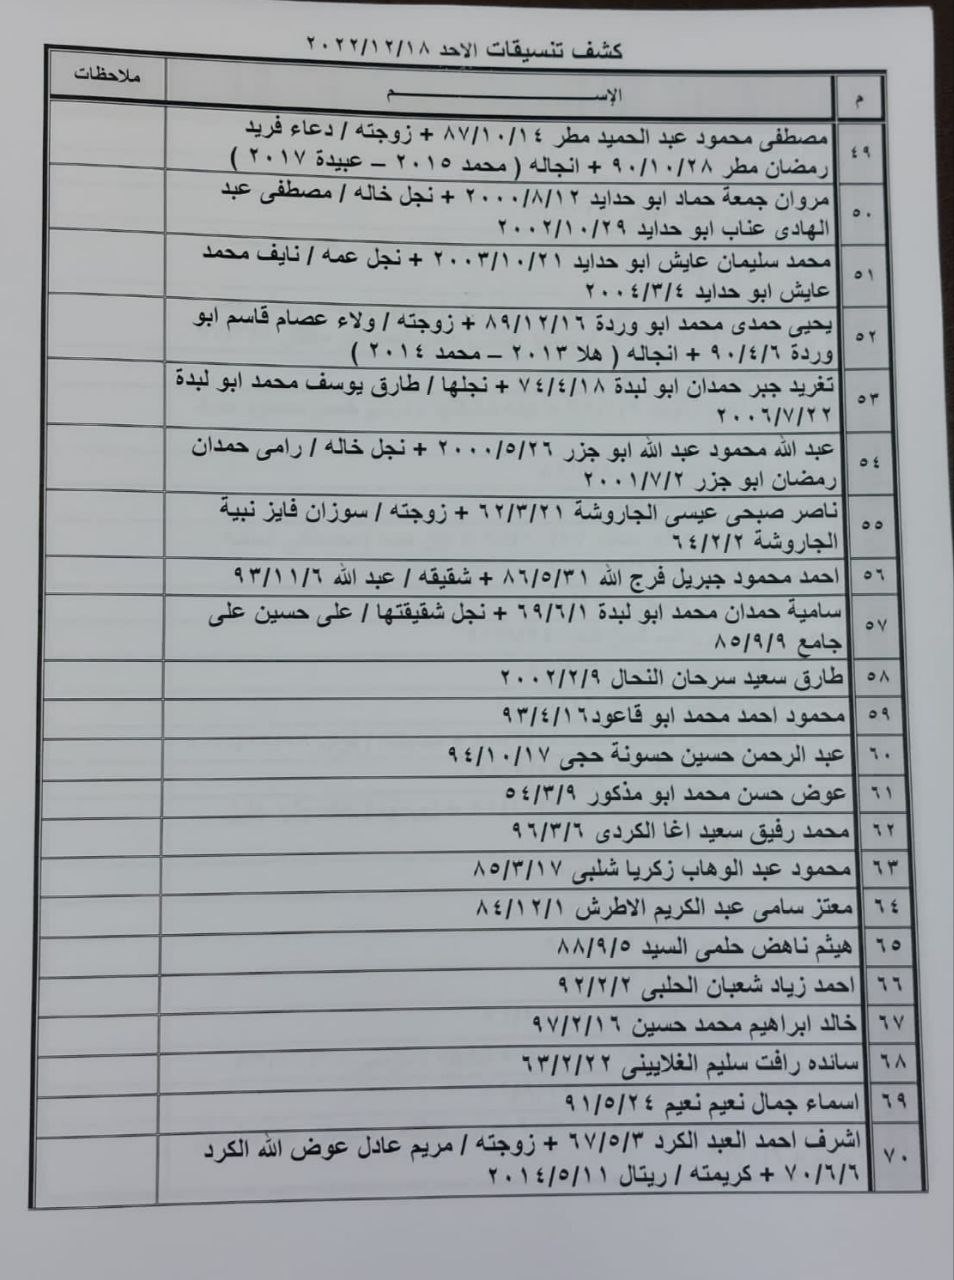 كشف تنسيقات الاحد ٢٠٢٢/١٢/١٨
م الإســـــــم ملاحظات
٤٩ مصطفى محمود عبد الحميد مطر ٨٧/١٠/١٤ + زوجته / دعاء فريد
رمضان مطر ٩٠/١٠/٢٨ + انجاله ( محمد ٢٠١٥ – عبيدة ٢٠١٧ )
٥٠ مروان جمعة حماد ابو حدايد ٢٠٠٠/٨/١٢ + نجل خاله / مصطفى عبد
الهادى عناب ابو حدايد ٢٠٠٢/١٠/٢٩
٥١ محمد سليمان عايش ابو حدايد ٢٠٠٣/١٠/٢١ + نجل عمه / نايف محمد
عايش ابو حدايد ٢٠٠٤/٣/٤
٥٢ يحيى حمدى محمد ابو وردة ٨٩/١٢/١٦ + زوجته / ولاء عصام قاسم ابو
وردة ٩٠/٤/٦ + انجاله ( هلا ٢٠١٣ – محمد ٢٠١٤ )
٥٣ تغريد جبر حمدان ابو لبدة ٧٤/٤/١٨ + نجلها / طارق يوسف محمد ابو لبدة
٢٠٠٦/٧/٢٢
٥٤ عبد الله محمود عبد الله ابو جزر ٢٠٠٠/٥/٢٦ + نجل خاله / رامى حمدان
رمضان ابو جزر ٢٠٠١/٧/٢
٥٥ ناصر صبحى عيسى الجاروشة ٦٢/٣/٢١ + زوجته / سوزان فايز نبية
الجاروشة ٦٤/٢/٢
٥٦ احمد محمود جبريل فرج الله ٨٦/٥/٣١ + شقيقه / عبد الله ٩٣/١١/٦
٥٧ سامية حمدان محمد ابو لبدة ٦٩/٦/١ + نجل شقيقتها / على حسين على
جامع ٨٥/٩/٩
٥٨ طارق سعيد سرحان النحال ٢٠٠٢/٢/٩
٥٩ محمود احمد محمد ابو قاعود٩٣/٤/١٦
٦٠ عبد الرحمن حسين حسونة حجى ٩٤/١٠/١٧
٦١ عوض حسن محمد ابو مذكور ٥٤/٣/٩
٦٢ محمد رفيق سعيد اغا الكردى ٩٦/٣/٦
٦٣ محمود عبد الوهاب زكريا شلبى ٨٥/٣/١٧
٦٤ معتز سامى عبد الكريم الاطرش ٨٤/١٢/١
٦٥ هيثم ناهض حلمى السيد ٨٨/٩/٥
٦٦ احمد زياد شعبان الحلبى ٩٢/٢/٢
٦٧ خالد ابراهيم محمد حسين ٩٧/٢/١٦
٦٨ سانده رافت سليم الغلايينى ٦٣/٢/٢٢
٦٩ اسماء جمال نعيم نعيم ٩١/٥/٢٤
٧٠ اشرف احمد العبد الكرد ٦٧/٥/٣ + زوجته / مريم عادل عوض الله الكرد
٧٠/٦/٦ + كريمته / ريتال ٢٠١٤/٥/١١